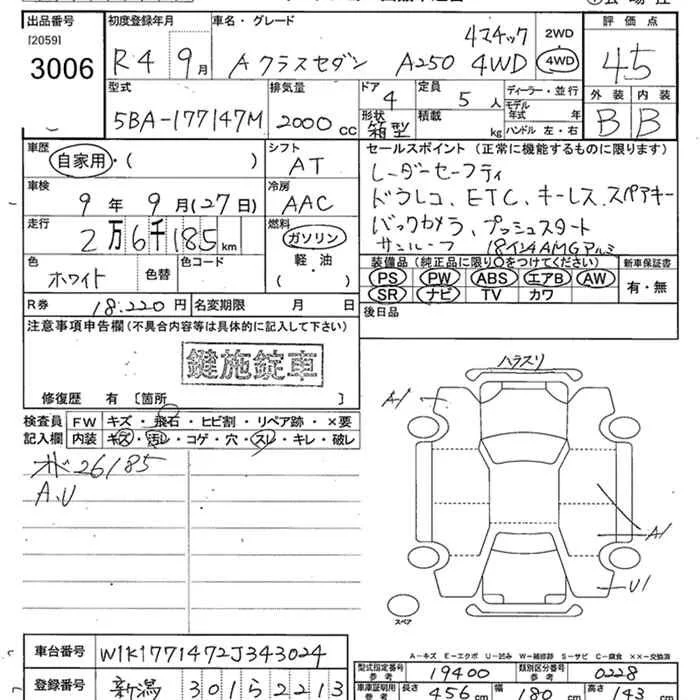 出品番号 初度登録年月 車名・グレード 評価点
[2059] 3006 R4 9月 Aクラスセダン A250 4マチック 4WD 2WD 4WD 45
型式 排気量 ドア 4 定員 5人 ディーラー・並行 外装 内装
5BA-177147M 2000cc 形状 箱型 積載 kg モデル年式 年式 ハンドル 左・右 B B
車歴 シフト セールスポイント (正常に機能するものに限ります)
自家用・( ) AT レーダーセーフティ
車検 冷房 ドラレコ、ETC、キーレス、スペアキー
9年9月(27日) AAC バックカメラ、プッシュスタート
走行 燃料 サンルーフ 18インチAMGアルミ
2万6千185km ガソリン 軽油 ( )
装備品 (純正品に限り○をつけてください) 新車保証書
色 ホワイト 色替 色コード PS PW ABS エアB AW 有・無
SR ナビ TV カワ
R券 18,220円 名変期限 月 日 後日品
注意事項申告欄(不具合内容等は具体的に記入して下さい)
鍵施錠車
修復歴 有 〔箇所 〕
検査員 FW キズ・飛石・ヒビ割・リペア跡・×要
記入欄 内装 キズ・汚レ・コゲ・穴・スレ・キレ・破レ
オド26185
A.U
ハラスリ
A1
A1
U1
スペア
A-キズ E-エクボ U-凹み W-補修跡 S-サビ C-腐食 ××-交換済
車台番号 W1K1771472J343024
型式指定番号 参考 19400 類別区分番号 参考 0228
登録番号 新潟 301ら2213
車庫証明用 参考 長さ 456cm 幅 180cm 高さ 143cm